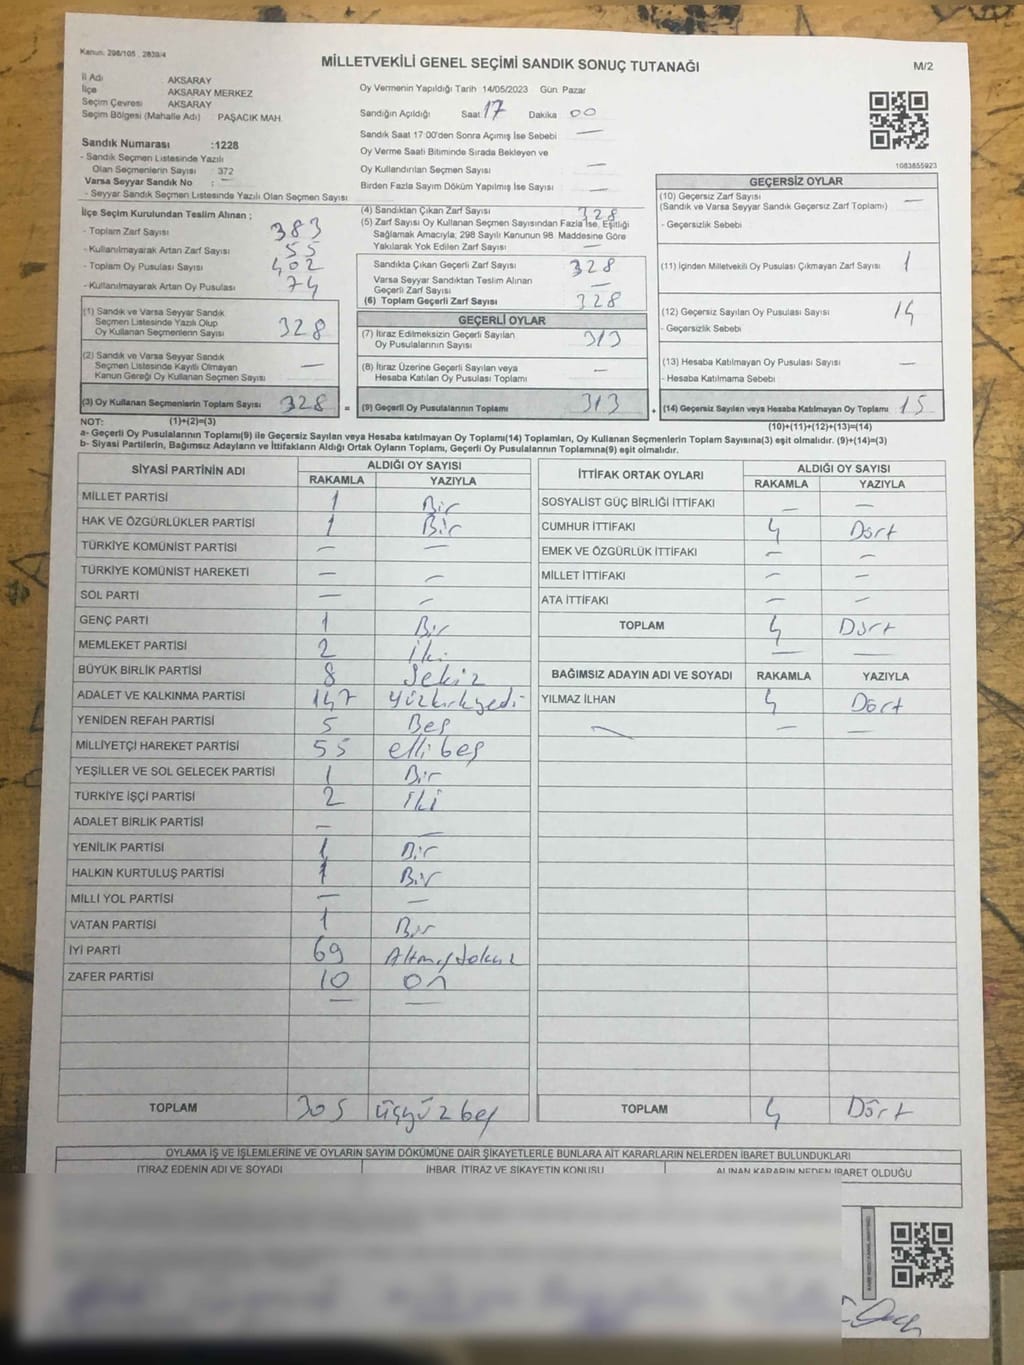 Kanun: 298/105 , 2839/4
MİLLETVEKİLİ GENEL SEÇİMİ SANDIK SONUÇ TUTANAĞI
M/2
İl Adı : AKSARAY
İlçe : AKSARAY MERKEZ
Seçim Çevresi : AKSARAY
Seçim Bölgesi (Mahalle Adı) : PAŞACIK MAH.
Oy Vermenin Yapıldığı Tarih 14/05/2023 Gün Pazar
Sandığın Açıldığı Saat 17 Dakika 00
Sandık Saat 17:00'den Sonra Açımış İse Sebebi —
Oy Verme Saati Bitiminde Sırada Bekleyen ve
Oy Kullandırılan Seçmen Sayısı —
Birden Fazla Sayım Döküm Yapılmış İse Sayısı —
1083855923
Sandık Numarası :1228
- Sandık Seçmen Listesinde Yazılı
Olan Seçmenlerin Sayısı : 372
Varsa Seyyar Sandık No : —
- Seyyar Sandık Seçmen Listesinde Yazılı Olan Seçmen Sayısı
İlçe Seçim Kurulundan Teslim Alınan ;
- Toplam Zarf Sayısı 383
- Kullanılmayarak Artan Zarf Sayısı 55
- Toplam Oy Pusulası Sayısı 402
- Kullanılmayarak Artan Oy Pusulası 74
(1) Sandık ve Varsa Seyyar Sandık
Seçmen Listesinde Yazılı Olup
Oy Kullanan Seçmenlerin Sayısı 328
(2) Sandık ve Varsa Seyyar Sandık
Seçmen Listesinde Kayıtlı Olmayan
Kanun Gereği Oy Kullanan Seçmen Sayısı —
(3) Oy Kullanan Seçmenlerin Toplam Sayısı 328 =
(4) Sandıktan Çıkan Zarf Sayısı 328
(5) Zarf Sayısı Oy Kullanan Seçmen Sayısından Fazla İse, Eşitliği
Sağlamak Amacıyla; 298 Sayılı Kanunun 98. Maddesine Göre
Yakılarak Yok Edilen Zarf Sayısı —
Sandıkta Çıkan Geçerli Zarf Sayısı 328
Varsa Seyyar Sandıktan Teslim Alınan
Geçerli Zarf Sayısı —
(6) Toplam Geçerli Zarf Sayısı 328
GEÇERLİ OYLAR
(7) İtiraz Edilmeksizin Geçerli Sayılan
Oy Pusulalarının Sayısı 313
(8) İtiraz Üzerine Geçerli Sayılan veya
Hesaba Katılan Oy Pusulası Toplamı —
(9) Geçerli Oy Pusulalarının Toplamı 313 +
GEÇERSİZ OYLAR
(10) Geçersiz Zarf Sayısı
(Sandık ve Varsa Seyyar Sandık Geçersiz Zarf Toplamı) —
- Geçersizlik Sebebi
(11) İçinden Milletvekili Oy Pusulası Çıkmayan Zarf Sayısı 1
(12) Geçersiz Sayılan Oy Pusulası Sayısı 14
- Geçersizlik Sebebi
(13) Hesaba Katılmayan Oy Pusulası Sayısı —
- Hesaba Katılmama Sebebi
(14) Geçersiz Sayılan veya Hesaba Katılmayan Oy Toplamı 15
NOT: (1)+(2)=(3) (10)+(11)+(12)+(13)=(14)
a- Geçerli Oy Pusulalarının Toplamı(9) ile Geçersiz Sayılan veya Hesaba katılmayan Oy Toplamı(14) Toplamları, Oy Kullanan Seçmenlerin Toplam Sayısına(3) eşit olmalıdır. (9)+(14)=(3)
b- Siyasi Partilerin, Bağımsız Adayların ve İttifakların Aldığı Ortak Oyların Toplamı, Geçerli Oy Pusulalarının Toplamına(9) eşit olmalıdır.
SİYASİ PARTİNİN ADI ALDIĞI OY SAYISI
RAKAMLA YAZIYLA
MİLLET PARTİSİ 1 Bir
HAK VE ÖZGÜRLÜKLER PARTİSİ 1 Bir
TÜRKİYE KOMÜNİST PARTİSİ — —
TÜRKİYE KOMÜNİST HAREKETİ — —
SOL PARTİ — —
GENÇ PARTİ 1 Bir
MEMLEKET PARTİSİ 2 İki
BÜYÜK BİRLİK PARTİSİ 8 Sekiz
ADALET VE KALKINMA PARTİSİ 147 Yüzkırkyedi
YENİDEN REFAH PARTİSİ 5 Beş
MİLLİYETÇİ HAREKET PARTİSİ 55 elli beş
YEŞİLLER VE SOL GELECEK PARTİSİ 1 Bir
TÜRKİYE İŞÇİ PARTİSİ 2 iki
ADALET BİRLİK PARTİSİ — —
YENİLİK PARTİSİ 1 Bir
HALKIN KURTULUŞ PARTİSİ 1 Bir
MİLLİ YOL PARTİSİ — —
VATAN PARTİSİ 1 Bir
İYİ PARTİ 69 Altmışdokuz
ZAFER PARTİSİ 10 On
TOPLAM 305 üçyüzbeş
İTTİFAK ORTAK OYLARI ALDIĞI OY SAYISI
RAKAMLA YAZIYLA
SOSYALİST GÜÇ BİRLİĞİ İTTİFAKI — —
CUMHUR İTTİFAKI 4 Dört
EMEK VE ÖZGÜRLÜK İTTİFAKI — —
MİLLET İTTİFAKI — —
ATA İTTİFAKI — —
TOPLAM 4 Dört
BAĞIMSIZ ADAYIN ADI VE SOYADI RAKAMLA YAZIYLA
YILMAZ İLHAN 4 Dört
TOPLAM 4 Dört
OYLAMA İŞ VE İŞLEMLERİNE VE OYLARIN SAYIM DÖKÜMÜNE DAİR ŞİKAYETLERLE BUNLARA AİT KARARLARIN NELERDEN İBARET BULUNDUKLARI
İTİRAZ EDENİN ADI VE SOYADI İHBAR, İTİRAZ VE ŞİKAYETİN KONUSU ALINAN KARARIN NEDEN İBARET OLDUĞU